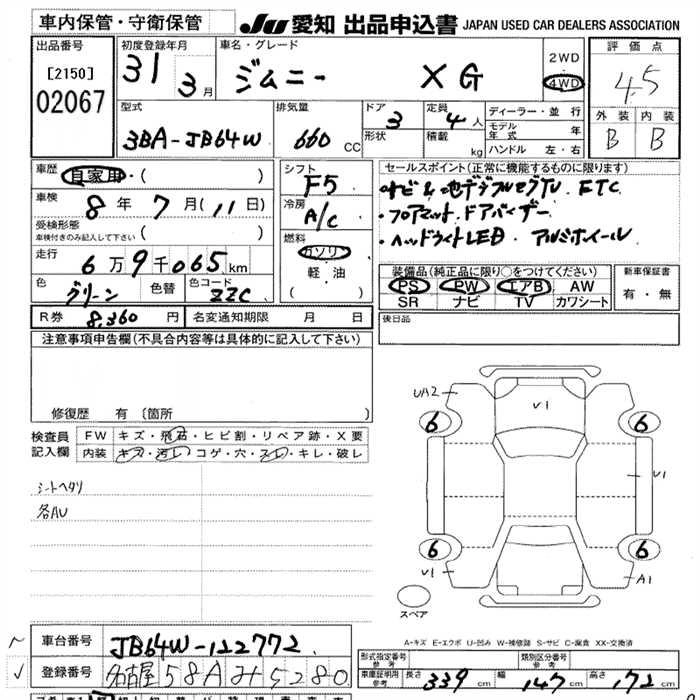 車内保管・守衛保管 JU 愛知 出品申込書 JAPAN USED CAR DEALERS ASSOCIATION
出品番号 [2150] 02067
初度登録年月 31 3月
車名・グレード ジムニー XG
2WD 4WD
評価点 4.5
外装 内装
B B
型式 3BA-JB64W
排気量 660 CC
ドア 3 定員 4人
形状 積載 kg
ディーラー・並行
モデル年式 年
ハンドル 左・右
車歴 自家用・( )
車検 8年7月(11日)
受検形態
車検付きのみ記入して下さい ( )
走行 6万9千065km
色 グリーン 色替 色コード ZZC
シフト F5
冷房 A/C
燃料 ガソリン
軽油
( )
セールスポイント(正常に機能するものに限ります)
・ナビ&地デジフルセグTV ETC
・フロアマット.ドアバイザー
・ヘッドライトLED. アルミホイール
装備品(純正品に限り○をつけてください)
PS PW エアB AW
SR ナビ TV カワシート
新車保証書
有・無
R券 8,360円 名変通知期限 月 日
後日品
注意事項申告欄(不具合内容等は具体的に記入して下さい)
修復歴 有 〔箇所
検査員記入欄
FW キズ・飛石・ヒビ割・リペア跡・X要
内装 キズ・汚レ・コゲ・穴・スレ・キレ・破レ
シートヘタリ
各AU
UA2 V1
6 6
V1
6 6
V1 A1
スペア
A-キズ E-エクボ U-凹み W-補修跡 S-サビ C-腐食 XX-交換済
車台番号 JB64W-122772
登録番号 名古屋58Aみ5280
形式指定番号 参考 類別区分番号
車庫証明用 参考 長さ 339cm 幅 147cm 高さ 172cm